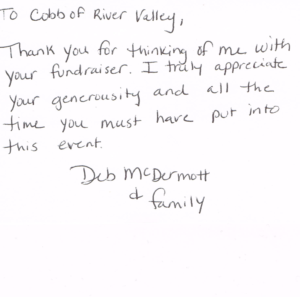 To Cobb of River Valley,
Thank you for thinking of me with
your fundraiser. I truly appreciate
your generousity and all the
time you must have put into
this event.
Deb McDermott
& family